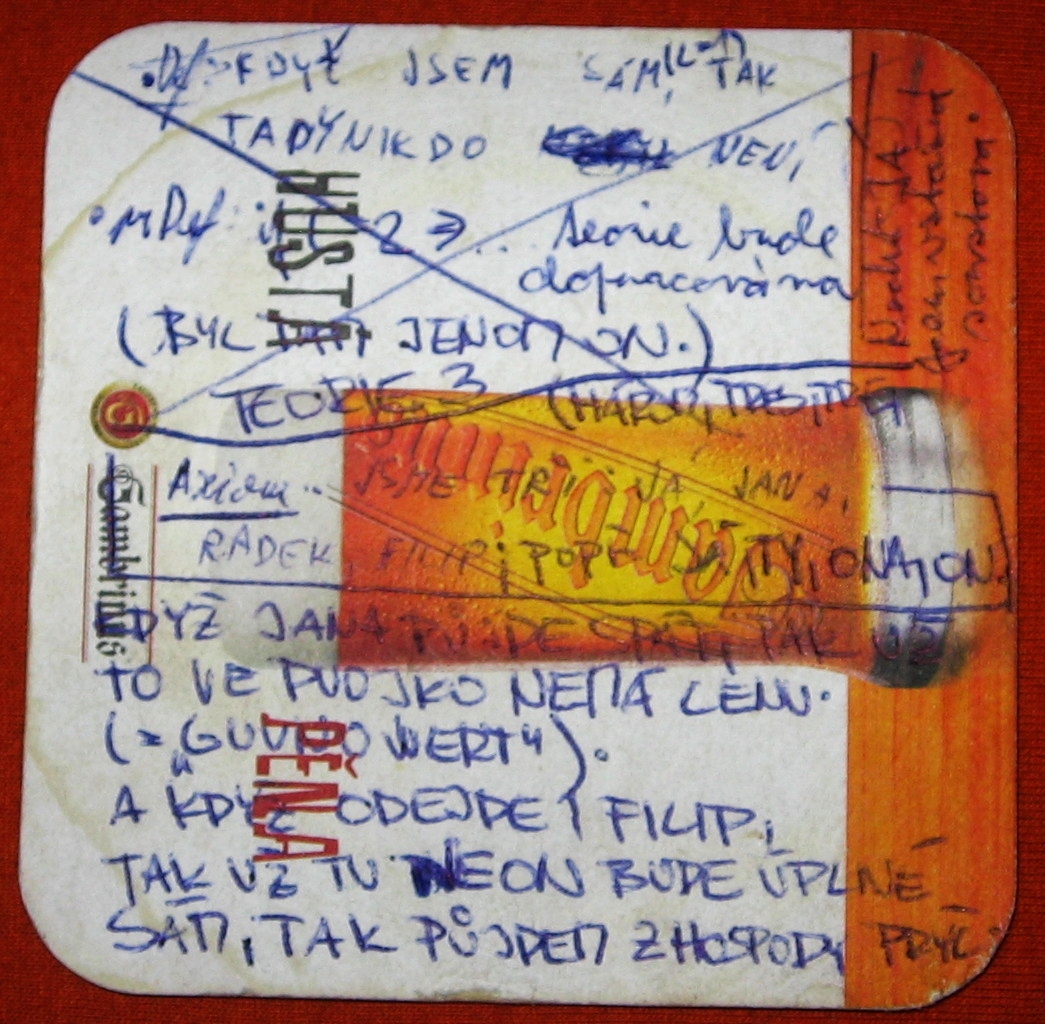 KDYŽ JSEM SÁM, TAK
TADY NIKDO NENÍ
2 ⇒ .. teorie bude
dopracována
(BYL JENOM ON.)
TEORIE 3
Axiom.. JSME TŘI JÁ, JANA,
RADEK, FILIP, POPŘ. JÁ, TY, ONA, ON.
KDYŽ JANA PŮJDE SPÁT, TAK UŽ
TO VE DVOJKO NEMÁ CENU.
(= „GUVNO WERT").
A KDYŽ ODEJDE I FILIP,
TAK UŽ TU NEON BUDE ÚPLNĚ
SÁM, TAK PŮJDEM Z HOSPODY PRYČ.
HUSTÁ
PĚNA
Gambrinus
Gambrinus